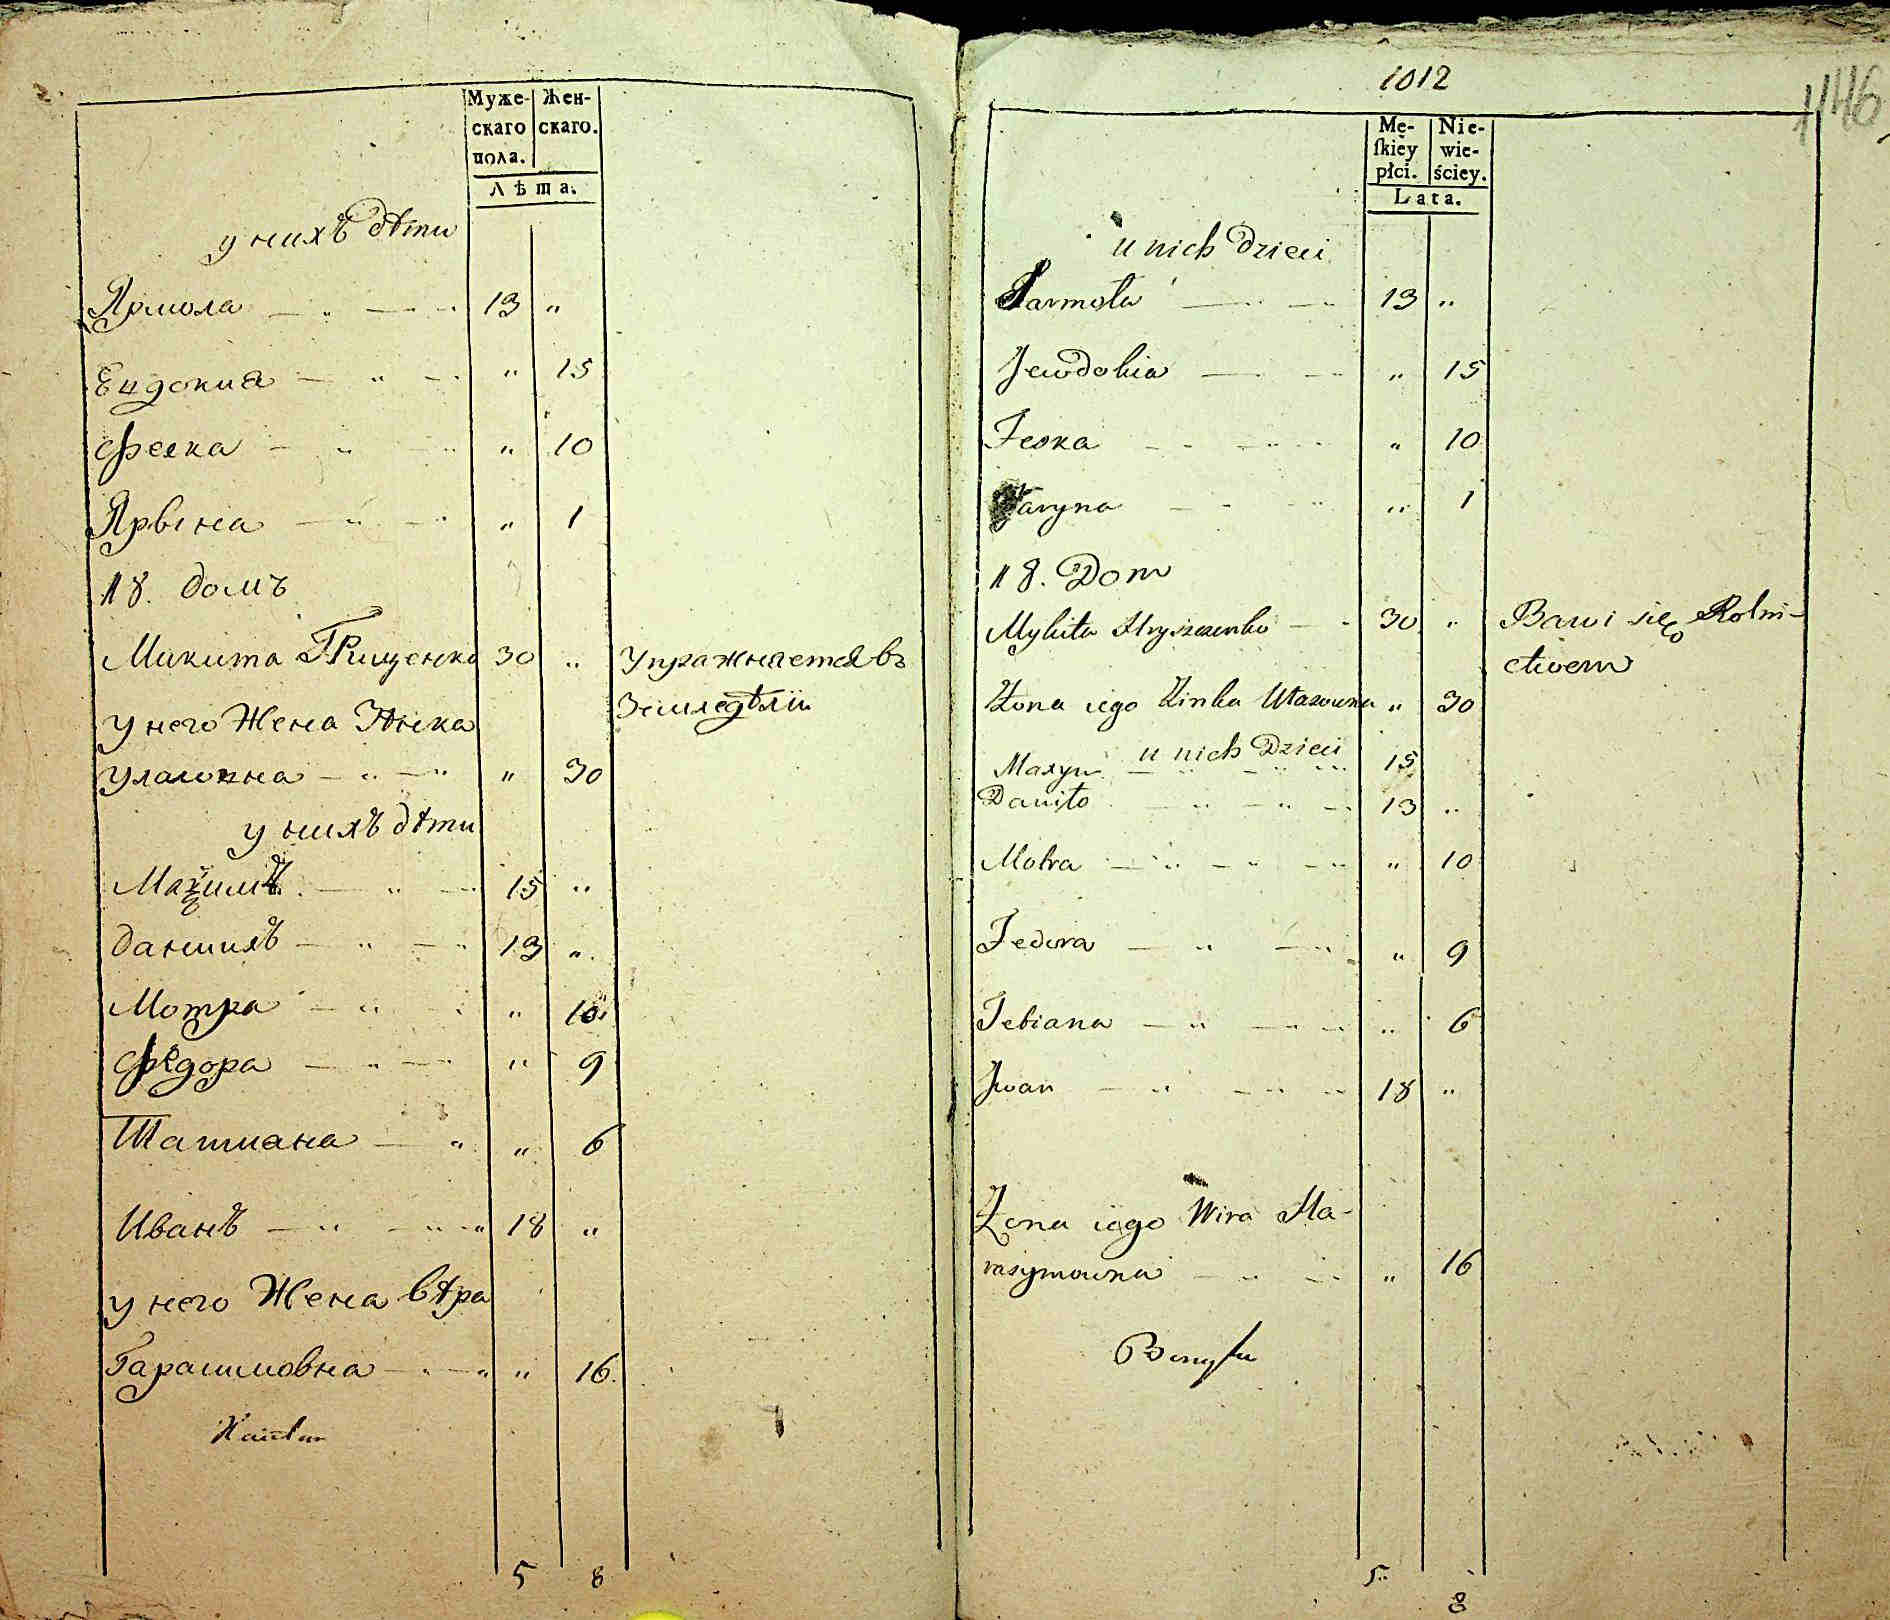 Муже- Жен-
скаго скаго.
пола.
Лѣта.
у нихъ дѣти
Ярмола 13 "
Евдокиа " 15
Феска " 10
Ярына " 1
18. домъ
Микита Грищенко 30 " Упражняется въ
Земледѣліи
у него Жена Зѣнка
Уласовна " 30
у нихъ дѣти
Маѯимъ 15 "
данилъ 13 "
Мотра " 10
Федора " 9
Татиана " 6
Иванъ 18 "
у него Жена вѣра
Гарасимовна " 16
5 8
1012
146
Mę- Nie-
ſkiey wie-
płci. ściey.
Lata.
u nich Dzieci
Jarmoła 13 "
Jewdokia " 15
Feska " 10
Jaryna " 1
18. Dom
Mykita Hryszczenko 30 " Bawi się Rolni-
ctwem
Żona iego Zinka Ułasowna " 30
u nich Dzieci
Maxym 15
Daniło 13 "
Motra " 10
Fedora " 9
Tetiana " 6
Iwan 18 "
Żona iego Wira Ha-
rasymowna " 16
5 8